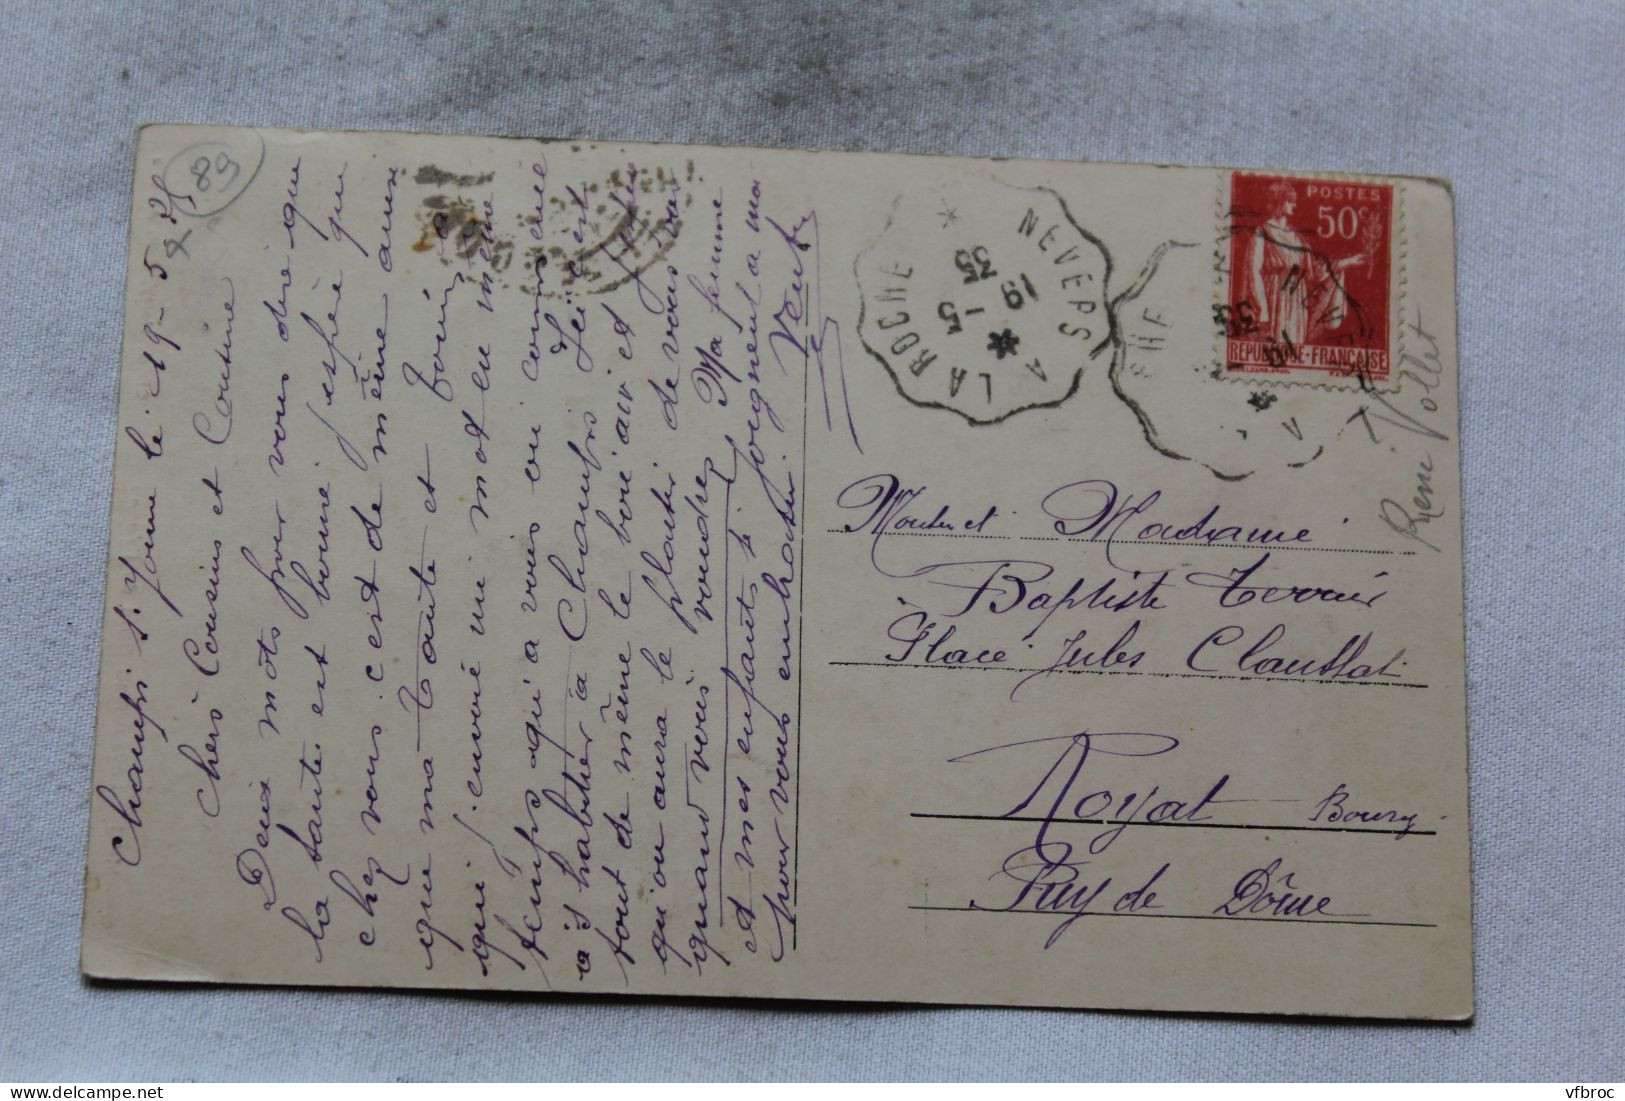 89
le 19-5-35
Chers Cousins et Cousine
Deux mots pour vous dire que
la santé est bonne j'espère que
chez vous c'est de même ainsi
que ma Tante et
que j'envoie un mot en même
temps qu'a vous ou comme
à s'habituer à Chaumps
tout de même le bon air et
qu'on aura le plaisir de vous
quand vous voudrez Ma femme
et mes enfants se joignent a moi
pour vous embrasser
LA ROCHE A NEVERS
19 - 5
35
POSTES
50c
RÉPUBLIQUE-FRANÇAISE
René Vollet
Madame
Baptiste Terrier
Place Jules Claussat
Royat Bourg
Puy de Dôme
vfbroc